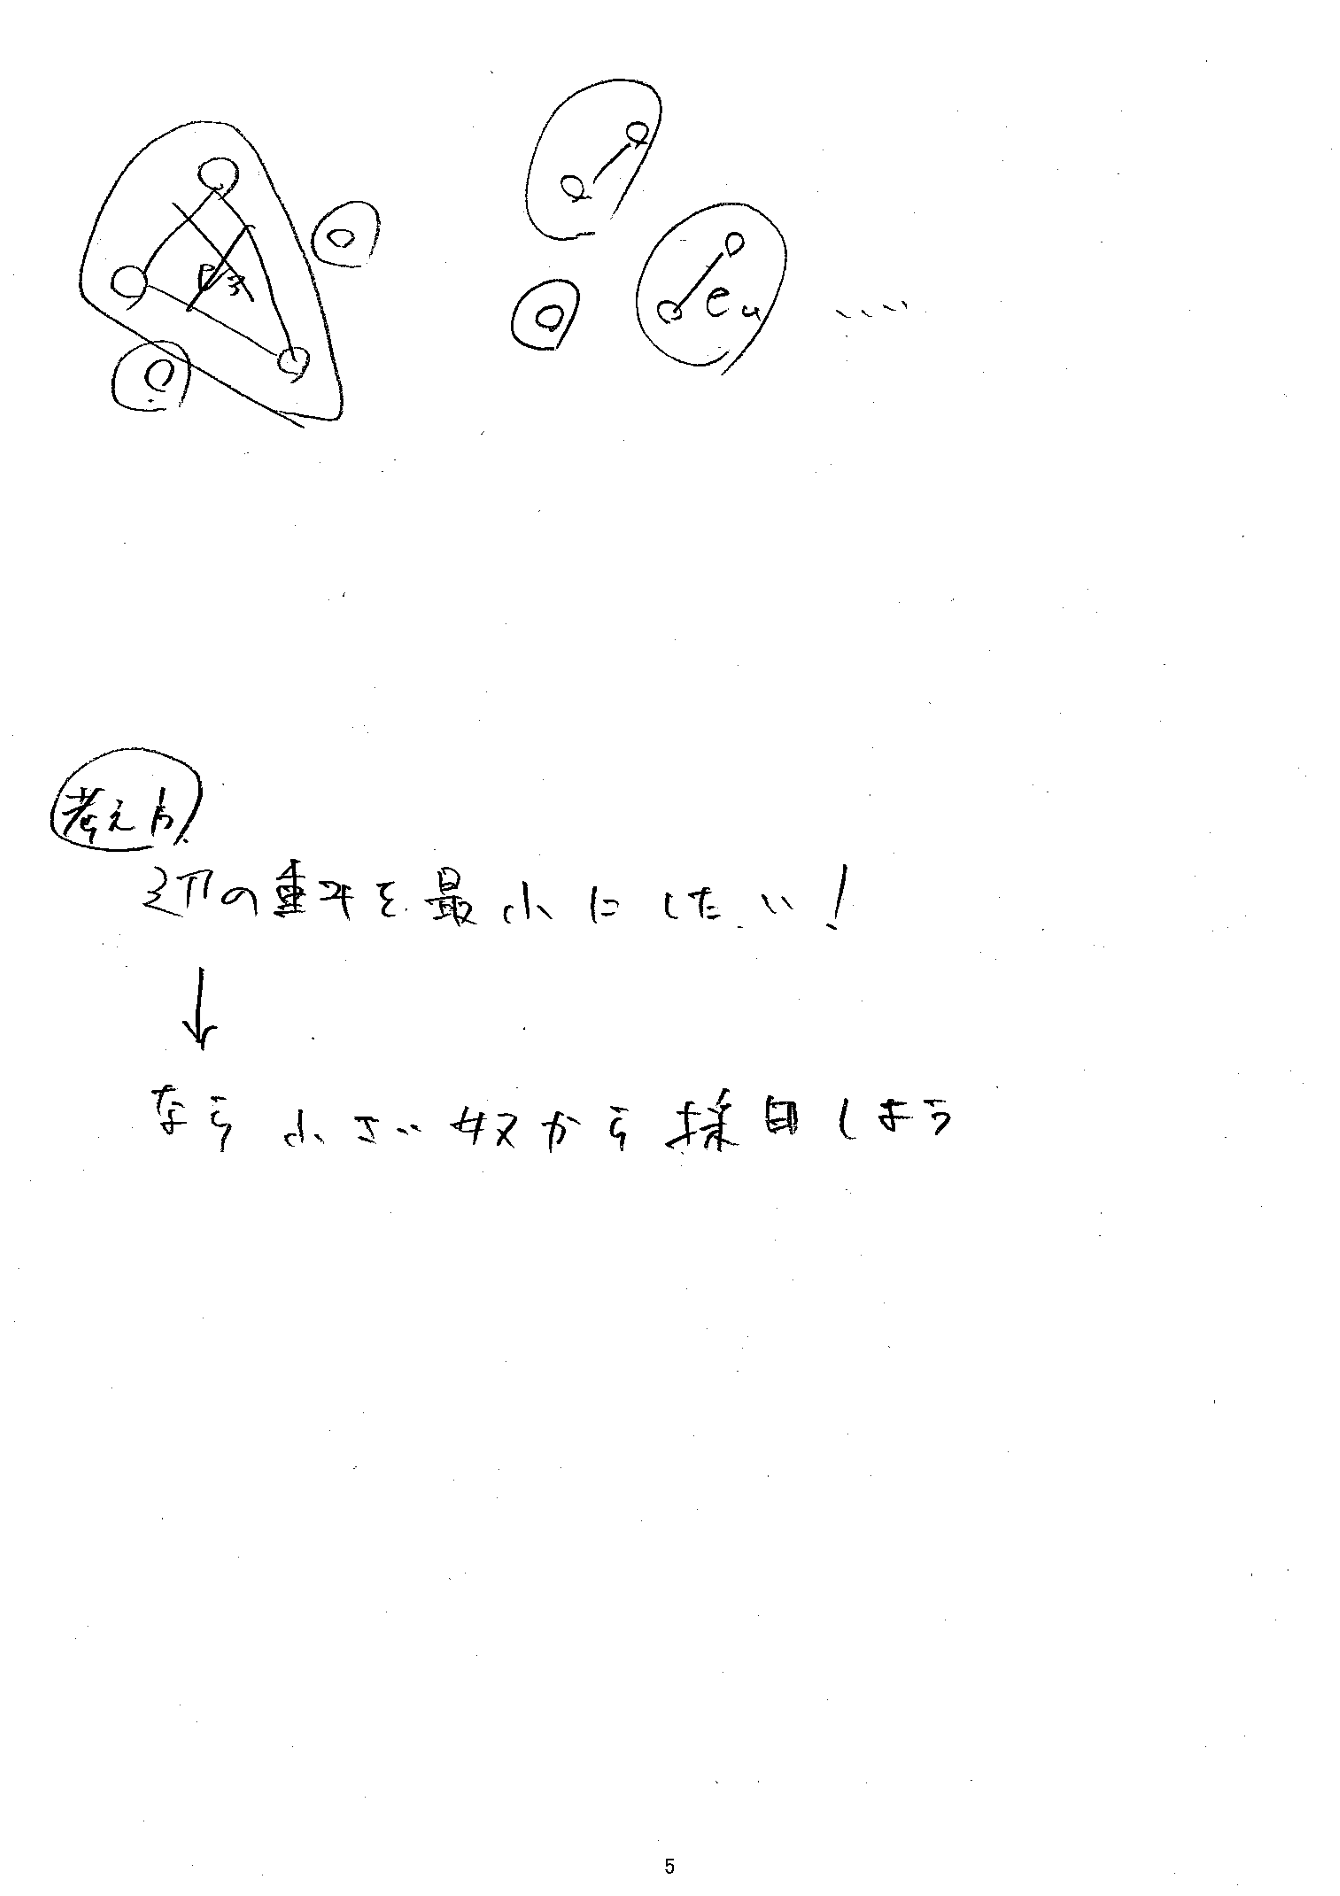 e3
e4
.....
考え方
辺の重みを最小にしたい!
↓
なら小さい奴から採用しよう
5